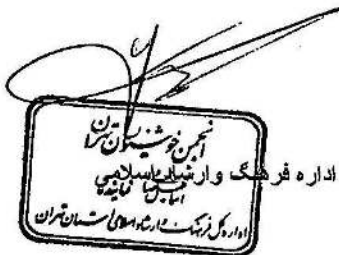 انجمن خوشنویسان تهران
اداره فرهنگ و ارشاد اسلامی
نماینده
اداره کل فرهنگ و ارشاد اسلامی استان تهران